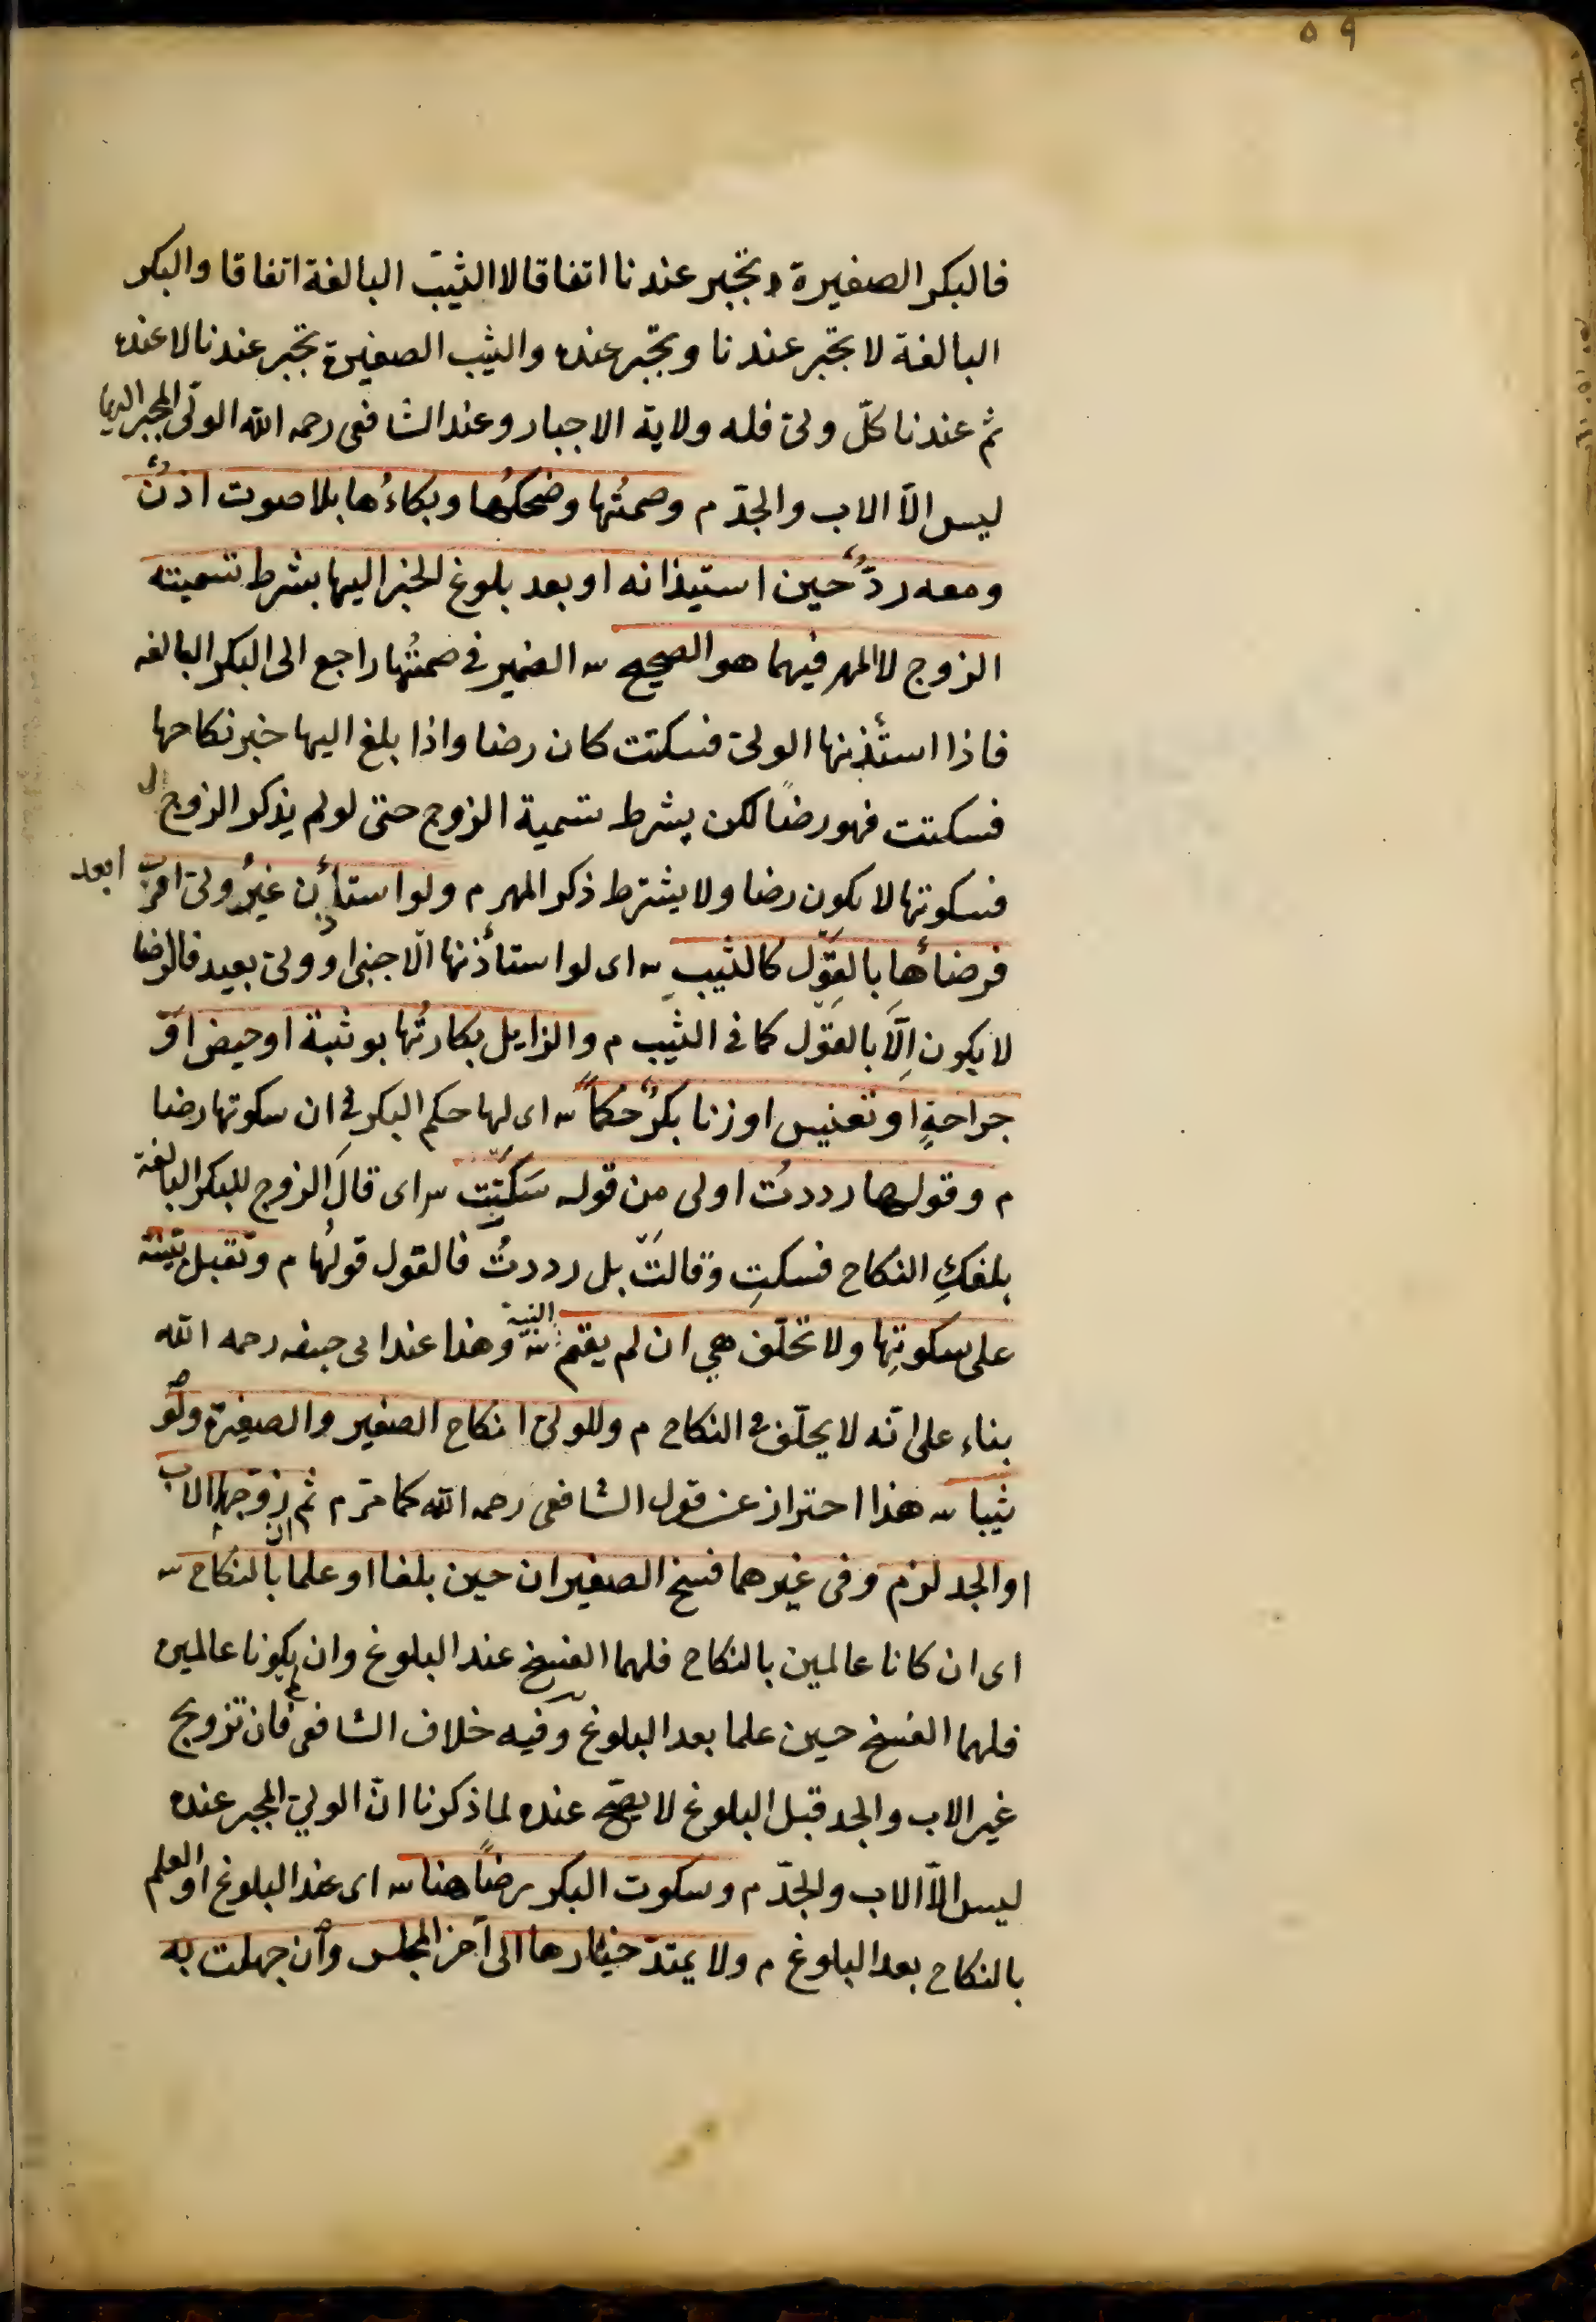 ٥٩
فالبكر الصغيرة تجبر عندنا اتفاقا لا الثيب البالغة اتفاقا والبكر
البالغة لا تجبر عندنا وتجبر عنده والثيب الصغيرة تجبر عندنا لا عنده
ثم عندنا كلّ ولىّ فله ولاية الاجبار وعند الشافعى رحمه الله الولىّ المجبر
ليس الّا الاب والجدّ م وصمتُها وضحكُها وبكاءُها بلا صوت اذنٌ
ومعه ردٌّ حين استيذانه او بعد بلوغ الخبر اليها بشرط تسميته
الزوج لا المهر فيهما هو الصحيح ش الضمير فى صمتُها راجع الى البكر البالغه
فاذا استأذنها الولىّ فسكتت كان رضا واذا بلغ اليها خبر نكاحها
فسكتت فهو رضاً لكن بشرط تسمية الزوج حتى لو لم يذكر الزوج
فسكوتها لا يكون رضا ولا يشترط ذكر المهر م ولو استأذن غيرُ ولىّ اقرب ابعد
فرضاؤها بالقول كالثيب ش اى لو استأذنها الاجنبى او ولىّ بعيد فالرضا
لا يكون اِلّا بالقول كما فى الثيب م والزايل بكارتُها بوثبة او حيض او
جراحةٍ او تعنيس او زنا بكرٌ حكماً ش اى لها حكم البكر فى ان سكوتها رضا
م وقولها رددتُ اولى من قوله سَكَتِّ ش اى قالَ الزوج للبكر البالغة
بلغكِ النكاح فسكتِ وقالت بل رددتُ فالقول قولُها م وتقبل بيّنته
على سكوتِها ولا تحلّف هي ان لم يقم البنية ش وهذا عند ابى حنيفه رحمه الله
بناء على انّه لا يحلّف فى النكاح م وللولىّ انكاح الصغير والصغيرة ولو
ثيبا ش هذا احتراز عن قول الشافعى رحمه الله كما مرّ م ثم ان زوّجها الاب
او الجد لزم وفى غيرهما فسخ الصغيران حين بلغا او علما بالنكاح ش
اى ان كانا عالمين بالنكاح فلهما الفسخ عند البلوغ وان لم يكونا عالمين
فلهما الفسخ حين علما بعد البلوغ وفيه خلاف الشافعى فان تزويج
غير الاب والجد قبل البلوغ لا يصحّ عنده لما ذكرنا انّ الوليّ المجبر عنده
ليس الّا الاب والجدّ م وسكوت البكر رضاً هنا ش اى عند البلوغ او العلم
بالنكاح بعد البلوغ م ولا يمتدّ خيارها الى آخر المجلس وان جهلت به